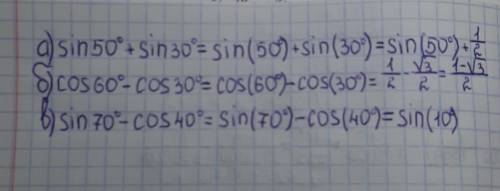 а) sin50°+sin30°=sin(50°)+sin(30°)=sin(50°)+1/2
б) cos60°-cos30°=cos(60°)-cos(30°)=1/2-√3/2=1-√3/2
в) sin70°-cos40°=sin(70°)-cos(40°)=sin(10)